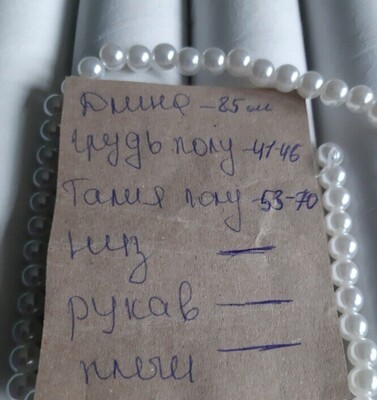 Длина - 85 см
Грудь полу - 41-46
Талия полу - 53-70
Низ —
рукав —
плечи —